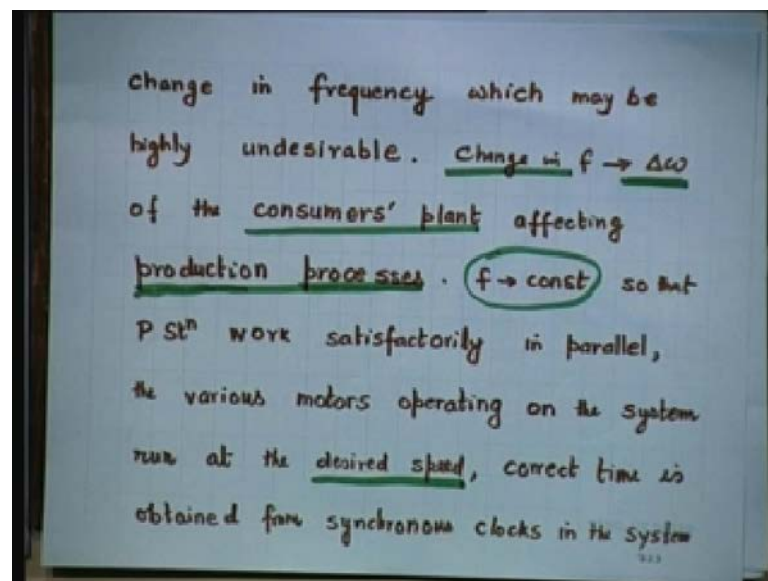 change in frequency which may be
highly undesirable. Change in f → Δω
of the consumers' plant affecting
production processes. f → const so that
P Stⁿ work satisfactorily in parallel,
the various motors operating on the system
run at the desired speed, correct time is
obtained from synchronous clocks in the system